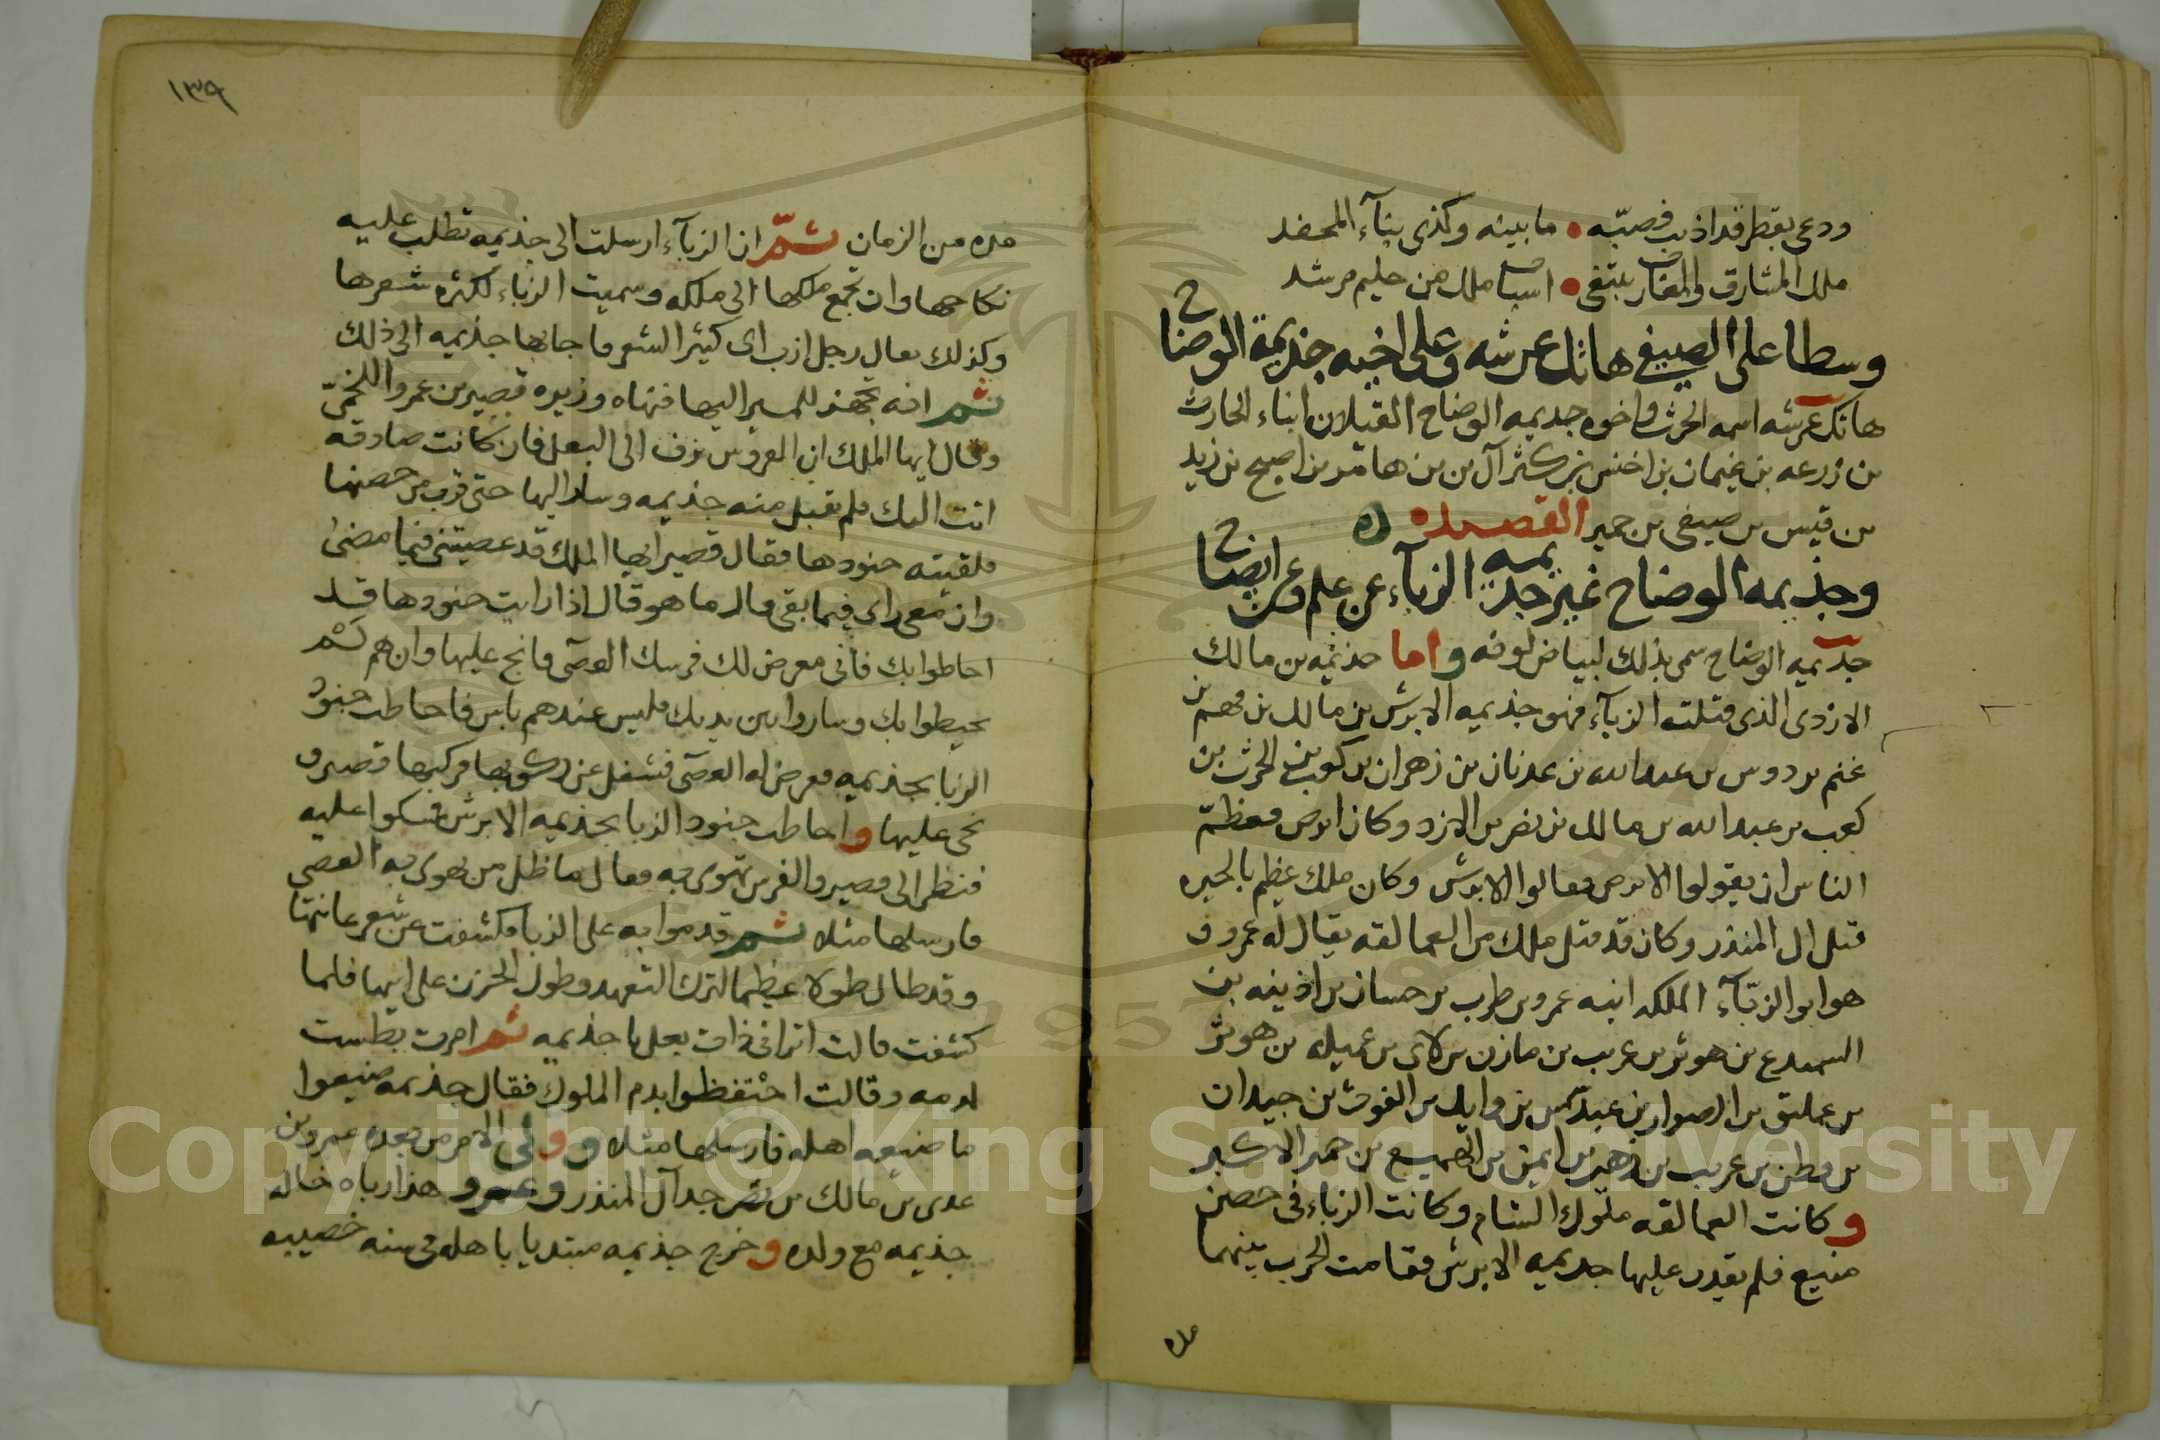 ودعى بقطر قد اذيب فصبّه • ما بينه وكذى بنآء المحفد
ملك المشارق والمغارب يبتغى • اسباب ملك من حليم مرشد
وسطا على الصيفى هاتك عرشه وعلى اخيه جذيمة الوضاح
هاتك عرشه اسمه الحرث واخوه جديمه الوضاح القيلان ابناء الحارث
بن زرعه بن غيمان بن اخنس بن كثر آل بن بن هاقد بن اصبح بن زيد
بن قيس بن صيفى بن حمير القصيده
وجذيمه الوضاح غير جذيمه الزبآء عن علم وعن ايضاح
جديمه الوضاح سمى بذلك لبياض لونه واما جذيمه بن مالك
الازدى الذى قتلته الزبآء فهو جذيمه الابرش بن مالك بن فهم بن
غنم بن دوس بن عبدالله بن عدنان بن زهران بن كعب بن الحرث بن
كعب بن عبد الله بن مالك بن نصر بن الازد وكان ابرص فعظمّ
الناس ان يقولوا الابرص فقالوا الابرش وكان ملك عظيم بالحيره
قتل ال المنذر وكان قد قتل ملك من العمالقه يقال له عمرو و
هو ابو الزبّآء الملكه ابنه عمرو بن طرب بن حسان بن اذينه بن
السميدع بن هوثر بن عريب بن مازن بن لاى بن عميله بن هوثر
بن عمليق بن الصوار بن عبد شمس بن وايل بن الغوث بن جيدان
بن قطن بن عريب بن زهير بن ايمن بن الهميسع بن حمير الاكبر
وكانت العمالقه ملوك الشام وكانت الزباء فى حصن
منيع فلم يقدر عليها جديمه الابرش فقامت الحرب بينهما
مده
١٣٩
مده من الزمان ثمّ ان الزبآء ارسلت الى جذيمه تطلب عليه
نكاحها وان تجمع ملكها الى ملكه وسميت الزباء لكثره شعرها
وكذلك يقال رجل ازب اى كثير الشعر فاجابها جذيمه الى ذلك
ثم انه تجهز للمسير اليها فنهاه وزيره قصير بن عمرو اللخمىّ
وقال ايها الملك ان العروس تزف الى البعل فان كانت صادقه
اتت اليك فلم يقبل منه جذيمه وسار اليها حتى قرب من حصنها
فلقيته جنودها فقال قصير ايها الملك قد عصيتنى فيما مضى
وان معى راى فيما بقى قال ما هو قال اذا رايت جنودها قد
احاطوا بك فانى معرض لك فرسك العصى فانج عليها وان هم لم
يحيطوا بك وساروا بين يديك فليس عندهم باس فاحاطت جنود
الزبا بجذيمه فعرض له العصى فشغل عن ركوبها فركبها قصير و
نجى عليها واحاطت جنود الزبا بجذيمه الابرش فمسكوا عليه
فنظر الى قصير والفرس تهوى به فقال ما ظل من تهوى به العصى
فارسلها مثلا ثم قدموا به على الزبا فكشفت عن شعر عانتها
وقد طال طولا عظيما لترك التعهد وطول الحزن على ابيها فلما
كشفت قالت اترانى ذات بعل يا جذيمه ثم امرت بطست
لدمه وقالت احتفظوا بدم الملوك فقال جذيمه ضيعوا
ما ضيعه اهله فارسلها مثلا وولى الامر من بعده عمرو بن
عدى بن مالك بن نصر جد آل المنذر وعمرو هذا رباه خاله
جذيمه مع ولده وخرج جذيمه مبتديا باهله فى سنه خصيبه
Copyright © King Saud University
1957